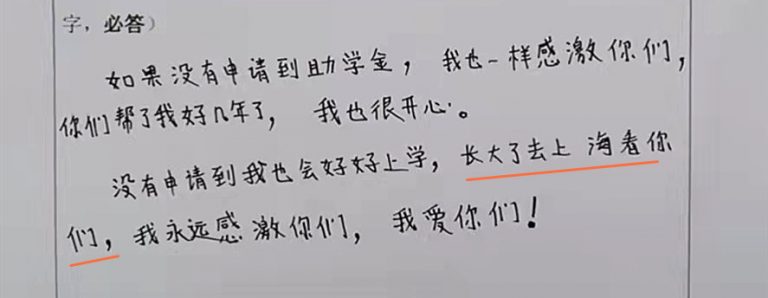 字，必答）
如果没有申请到助学金，我也一样感激你们，
你们帮了我好几年了，我也很开心。
没有申请到我也会好好上学，长大了去上海看你
们，我永远感激你们，我爱你们！